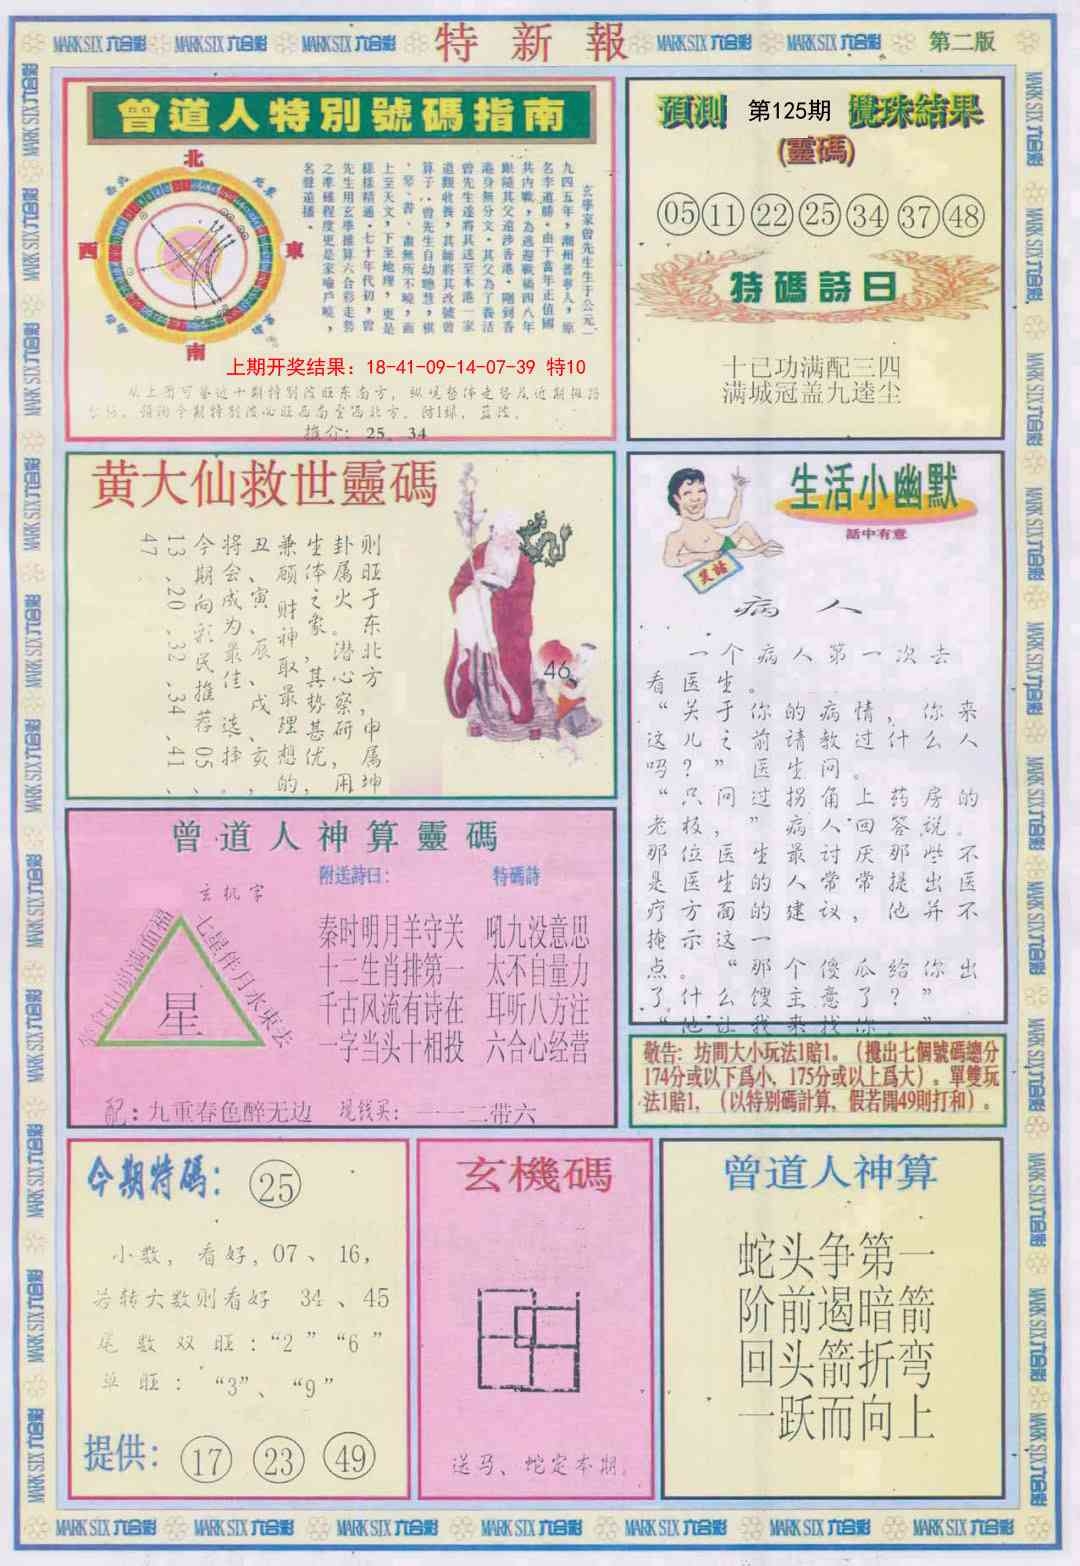 MARK SIX 六合彩 MARK SIX 六合彩 MARK SIX 六合彩 特新報 MARK SIX 六合彩 MARK SIX 六合彩 第二版
曾道人特別號碼指南
北
西
東
南
玄學家曾先生生于公元一
九四五年，潮州普寧人，原
名李道勝。由于當年正值國
共内戰，為逃避戰禍四八年
跟隨其父遠涉香港，剛到香
港身無分文，其父為了養活
曾先生遂將其送至本港一家
道觀收養，其師將其改號曾
算子，曾先生自幼聰慧，棋
、琴、書、畫無所不曉，而
上至天文，下至地理，更是
樣樣精通。七十年代初，曾
先生用玄學推算六合彩走勢
之準確程度更是家喻戶曉，
名聲遠播。
上期开奖结果：18-41-09-14-07-39 特10
从上图可鉴近十期特别波旺东南方，纵观整体走势及近期
推介：25、34
預測 第125期 攪珠結果
(靈碼)
05 11 22 25 34 37 48
特碼詩曰
十已功满配三四
满城冠盖九逵尘
黄大仙救世靈碼
则旺于东北方，申属坤
卦属火。潜心察研，用
生体之象，其势甚优，
兼顾财神取最理想的，
丑、寅、辰、戌、亥
将会成为最佳选择。
今期向彩民推荐05、
13、20、32、34、41、
47
46
生活小幽默
話中有意
笑話
病人
一个病人第一次去
看医生。
“关于你的病情，你来
这儿之前请教过什么人
吗？”医生问。
“只问过拐角上药房的
老板，”病人回答说。
那位医生最讨厌那些不
是医生的人常常提出医
疗方面的建议，他并不
掩示这一
点。“那个傻瓜给你出
了什么馊主意了？”
“他让我来找你。”
曾道人神算靈碼
玄机字
附送詩曰：
特碼詩
七星伴月水东去
星
秦时明月羊守关 吼九没意思
十二生肖排第一 太不自量力
千古风流有诗在 耳听八方注
一字当头十相投 六合心经营
配：九重春色醉无边 现钱买：一一二带六
敬告：坊間大小玩法1賠1。（攪出七個號碼總分
174分或以下爲小，175分或以上爲大）。單雙玩
法1賠1，（以特別碼計算，假若開49則打和）。
今期特碼：25
小数，看好，07、16，
若转大数则看好 34、45
尾数双旺：“2”“6”
单旺：“3”、“9”
提供：17 23 49
玄機碼
送马、蛇定本期
曾道人神算
蛇头争第一
阶前遏暗箭
回头箭折弯
一跃而向上
MARK SIX 六合彩 MARK SIX 六合彩 MARK SIX 六合彩 MARK SIX 六合彩 MARK SIX 六合彩 MARK SIX 六合彩 MARK SIX 六合彩